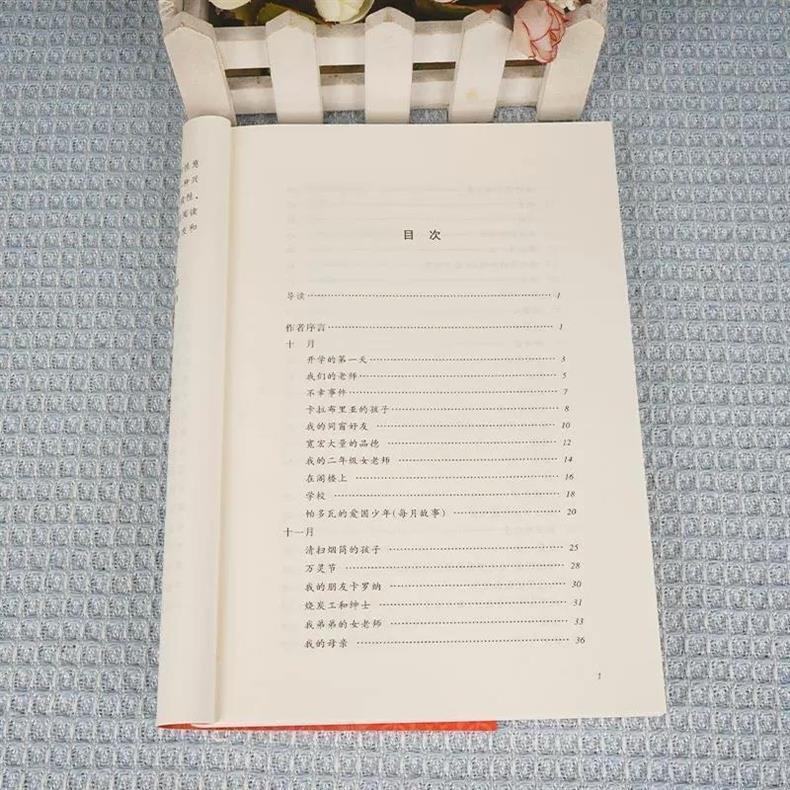 阅读
和
目 次
导读 1
作者序言 1
十 月
开学的第一天 3
我们的老师 5
不幸事件 7
卡拉布里亚的孩子 8
我的同窗好友 10
宽宏大量的品德 12
我的二年级女老师 14
在阁楼上 16
学校 18
帕多瓦的爱国少年(每月故事) 20
十一月
清扫烟筒的孩子 25
万灵节 28
我的朋友卡罗纳 30
烧炭工和绅士 31
我弟弟的女老师 33
我的母亲 36
1